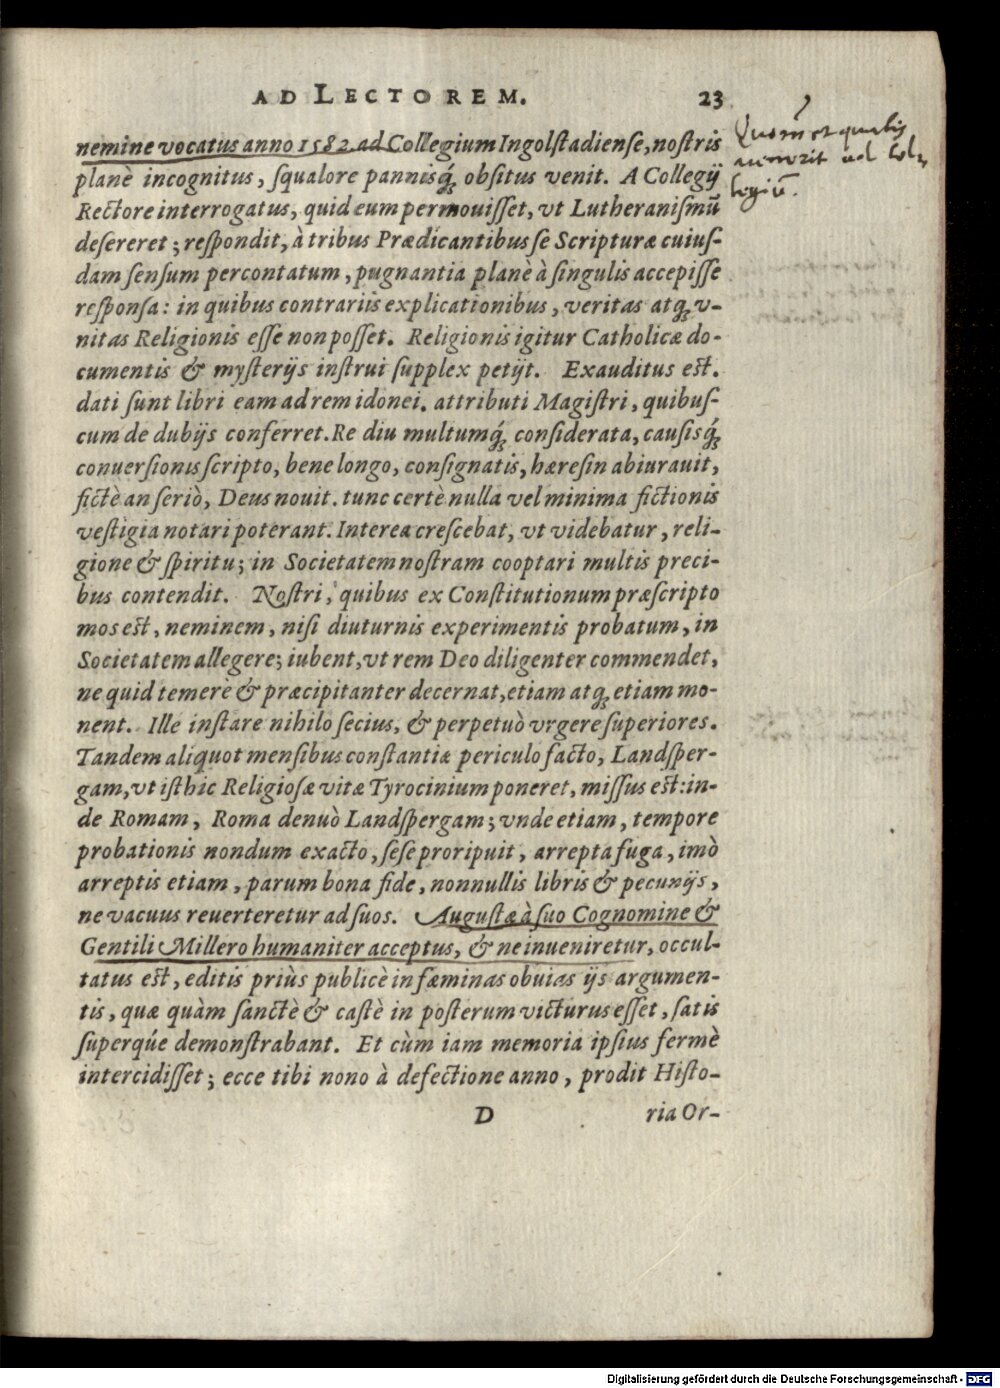 AD LECTOREM. 23
nemine vocatus anno 1582. ad Collegium Ingolſtadienſe, noſtris
planè incognitus, ſqualore pannisq́ꝫ obſitus venit. A Collegij
Rectore interrogatus, quid eum permouiſſet, vt Lutheraniſmũ
deſereret; reſpondit, à tribus Prædicantibus ſe Scripturæ cuiuſ-
dam ſenſum percontatum, pugnantia planè à ſingulis accepiſſe
reſponſa: in quibus contrariis explicationibus, veritas atqꝫ v-
nitas Religionis eſſe non poſſet. Religionis igitur Catholicæ do-
cumentis & myſterijs inſtrui ſupplex petijt. Exauditus eſt.
dati ſunt libri eam ad rem idonei. attributi Magiſtri, quibuſ-
cum de dubijs conferret. Re diu multumq́ꝫ conſiderata, cauſisq́ꝫ
conuerſionis ſcripto, bene longo, conſignatis, hæreſin abiurauit,
fictè an ſeriò, Deus nouit. tunc certè nulla vel minima fictionis
veſtigia notari poterant. Interea creſcebat, vt videbatur, reli-
gione & ſpiritu; in Societatem noſtram cooptari multis preci-
bus contendit. Noſtri, quibus ex Conſtitutionum præſcripto
mos eſt, neminem, niſi diuturnis experimentis probatum, in
Societatem allegere; iubent, vt rem Deo diligenter commendet,
ne quid temerè & præcipitanter decernat, etiam atqꝫ etiam mo-
nent. Ille inſtare nihilo ſecius, & perpetuò vrgere ſuperiores.
Tandem aliquot menſibus conſtantiæ periculo facto, Landſper-
gam, vt iſthic Religioſæ vitæ Tyrocinium poneret, miſſus eſt: in-
de Romam, Roma denuò Landſpergam; vnde etiam, tempore
probationis nondum exacto, ſeſe proripuit, arrepta fuga, imò
arreptis etiam, parum bona fide, nonnullis libris & pecunijs,
ne vacuus reuerteretur ad ſuos. Auguſtæ à ſuo Cognomine &
Gentili Millero humaniter acceptus, & ne inueniretur, occul-
tatus eſt, editis priùs publicè in fæminas obuias ijs argumen-
tis, quæ quàm ſanctè & caſtè in poſterum victurus eſſet, ſatis
ſuperq́ue demonſtrabant. Et cùm iam memoria ipſius fermè
intercidiſſet; ecce tibi nono à defectione anno, prodit Hiſto-
D ria Or-
et qualis
ad Col-
legiũ.
Digitalisierung gefördert durch die Deutsche Forschungsgemeinschaft - DFG